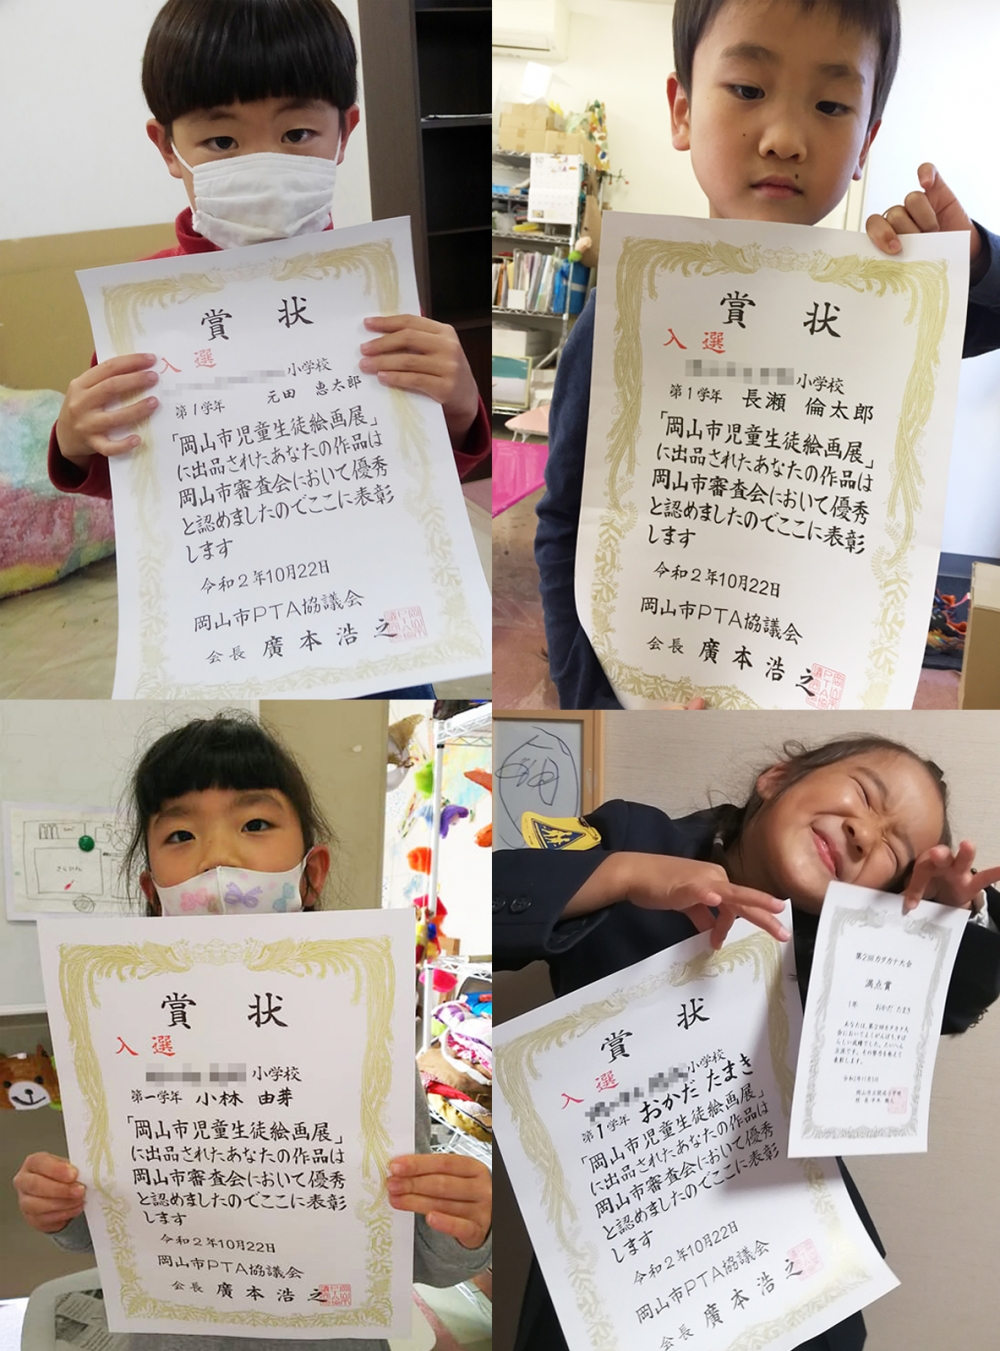 賞状
入選
小学校
第1学年 元田 恵太郎
「岡山市児童生徒絵画展」
に出品されたあなたの作品は
岡山市審査会において優秀
と認めましたのでここに表彰
します
令和2年10月22日
岡山市PTA協議会
会長 廣本浩之
賞状
入選
小学校
第1学年 長瀬 倫太郎
「岡山市児童生徒絵画展」
に出品されたあなたの作品は
岡山市審査会において優秀
と認めましたのでここに表彰
します
令和2年10月22日
岡山市PTA協議会
会長 廣本浩之
賞状
入選
小学校
第一学年 小林 由芽
「岡山市児童生徒絵画展」
に出品されたあなたの作品は
岡山市審査会において優秀
と認めましたのでここに表彰
します
令和2年10月22日
岡山市PTA協議会
会長 廣本浩之
賞状
入選
小学校
第1学年 おかだ たまき
「岡山市児童生徒絵画展」
に出品されたあなたの作品は
岡山市審査会において優秀
と認めましたのでここに表彰
します
令和2年10月22日
岡山市PTA協議会
会長 廣本浩之
第2回カタカナ大会
満点賞
1年 おかだ たまき
あなたは、第2回カタカナ大
会においてよくがんばりすば
らしい成績でした。
表彰します。